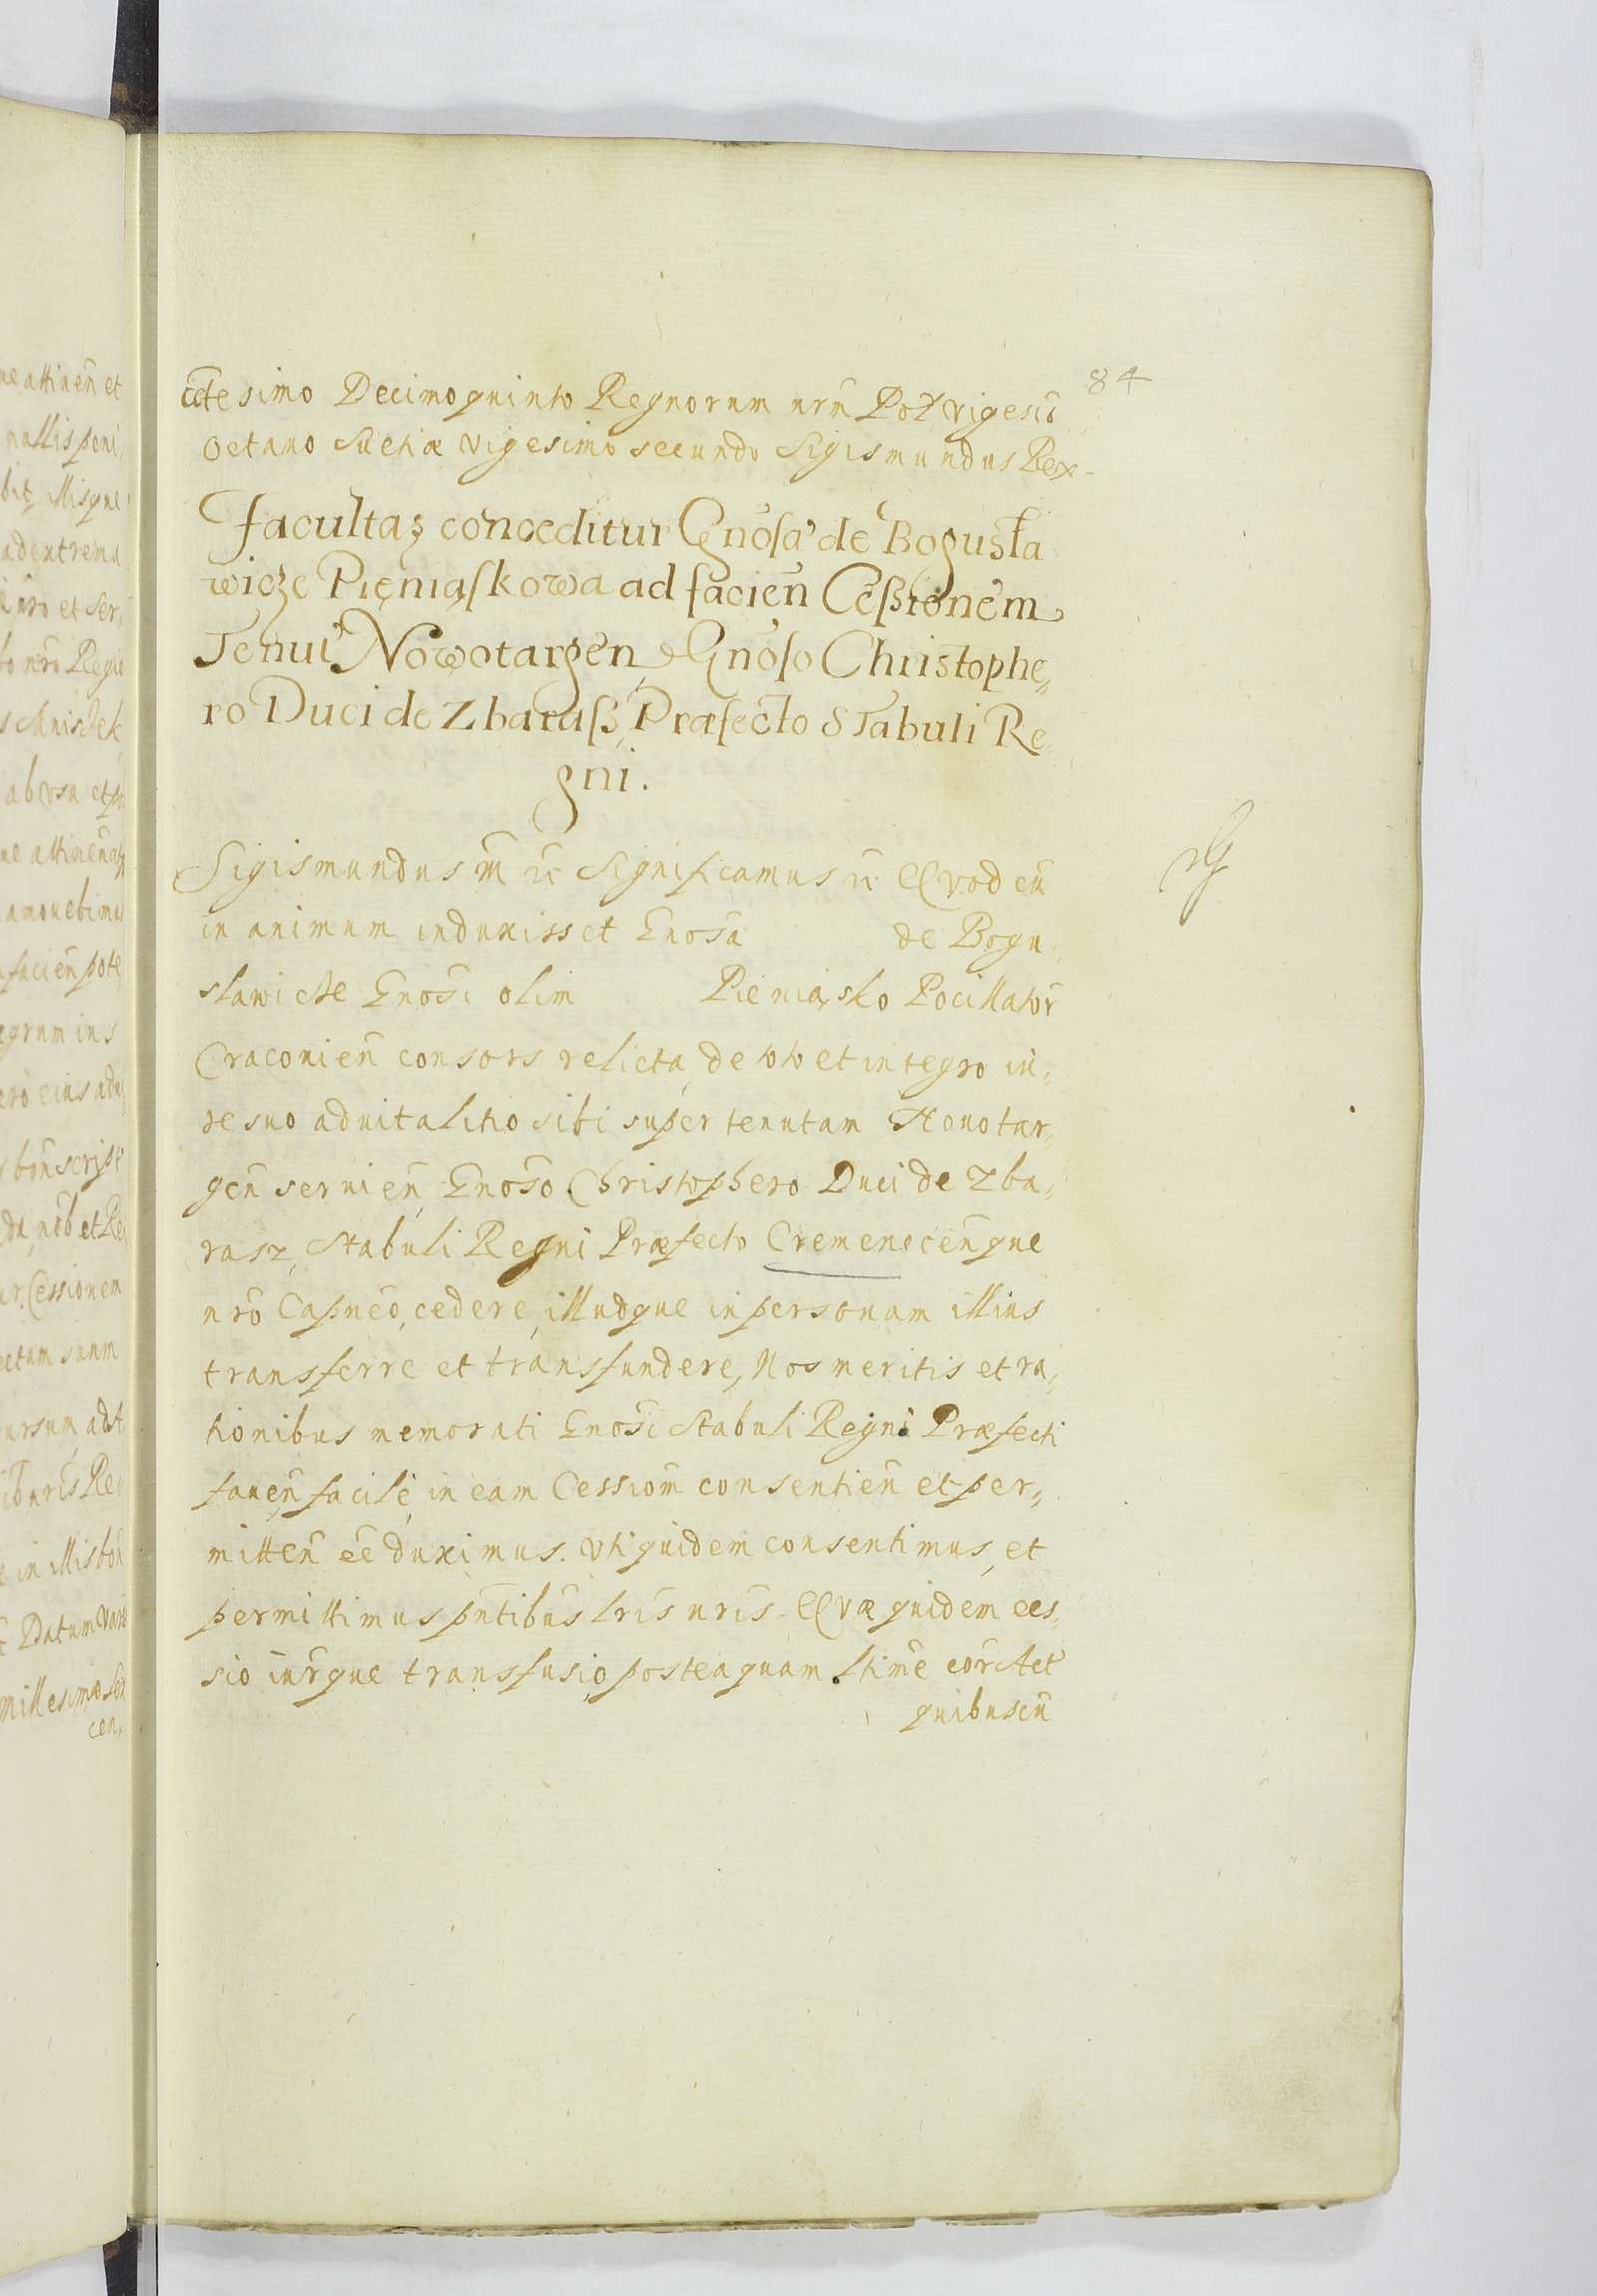 84
cētesimo Decimoquinto Regnorum nrū Pol vigesiō
octauo Suetiæ vigesimo secundo Sigismundus Rex
Facultas conceditur Gnosa de Bogusła
wicze Pieniąskowa ad facien̄ Ceßionem
Tenut Nowotargen̄ Gnoso Christophe„
ro Duci de Zbaraß Præfecto Stabuli Re
gni.
Sigismundus III rc Significamus rc Qvod cū
in animum induxisset Gnosā de Bogu„
slawicze Gnosi olim Pieniąsko Pocillator̄
Cracouien̄ consors relicta, de toto et integro iu„
re suo aduitalitio sibi super tenutam Nouotar„
gen̄ seruien̄, Gnoso Christophero Duci de Zba„
rasz, Stabuli Regni Præfecto Cremenecen̄que
nrō Capneō, cedere, illudque in personam illius
transferre et transfundere, Nos meritis et ra„
tionibus memorati Gnosi Stabuli Regni Præfecti
fauen̄, facilè in eam Cessiom̄ consentien̄ et per„
mitten̄ ēē duximus. Vti quidem consentimus, et
permittimus pn̄tibus lrīs nrīs. Qvæ quidem ces„
sio iur̄que transfusio posteaquam ltimē cor̄ Act
quibuscū
ue attinen̄ et
nullis peni
bit, illisque
ad extrema
nro et Ser„
to nrō Regio
s Mniszek
ab vsu et po
ne attinen̄
amouebimus
facien̄ pote
egrum ius
ero eius adui
bon̄ script
nob et Re
ur. Cessionem
ectam suum
ursum, ad
nrīs Re
in illis bon̄
Datum Vars
millesimo Sex
cen„